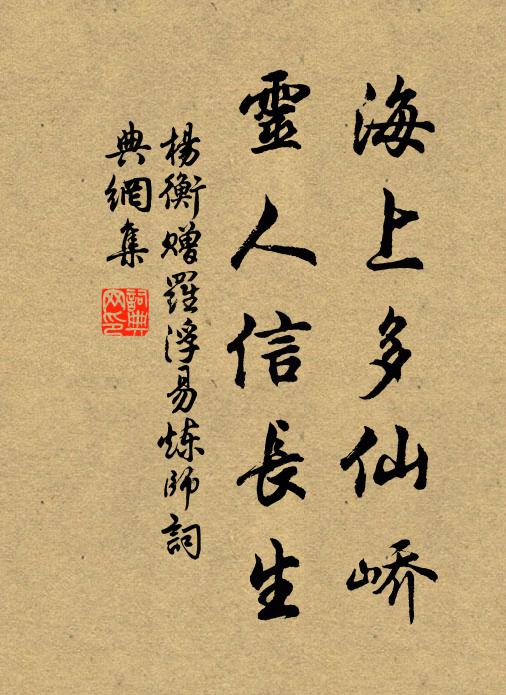 海上多仙峤
靈人信長生
楊衡赠羅浮易炼師詞
典網集
詞典网印